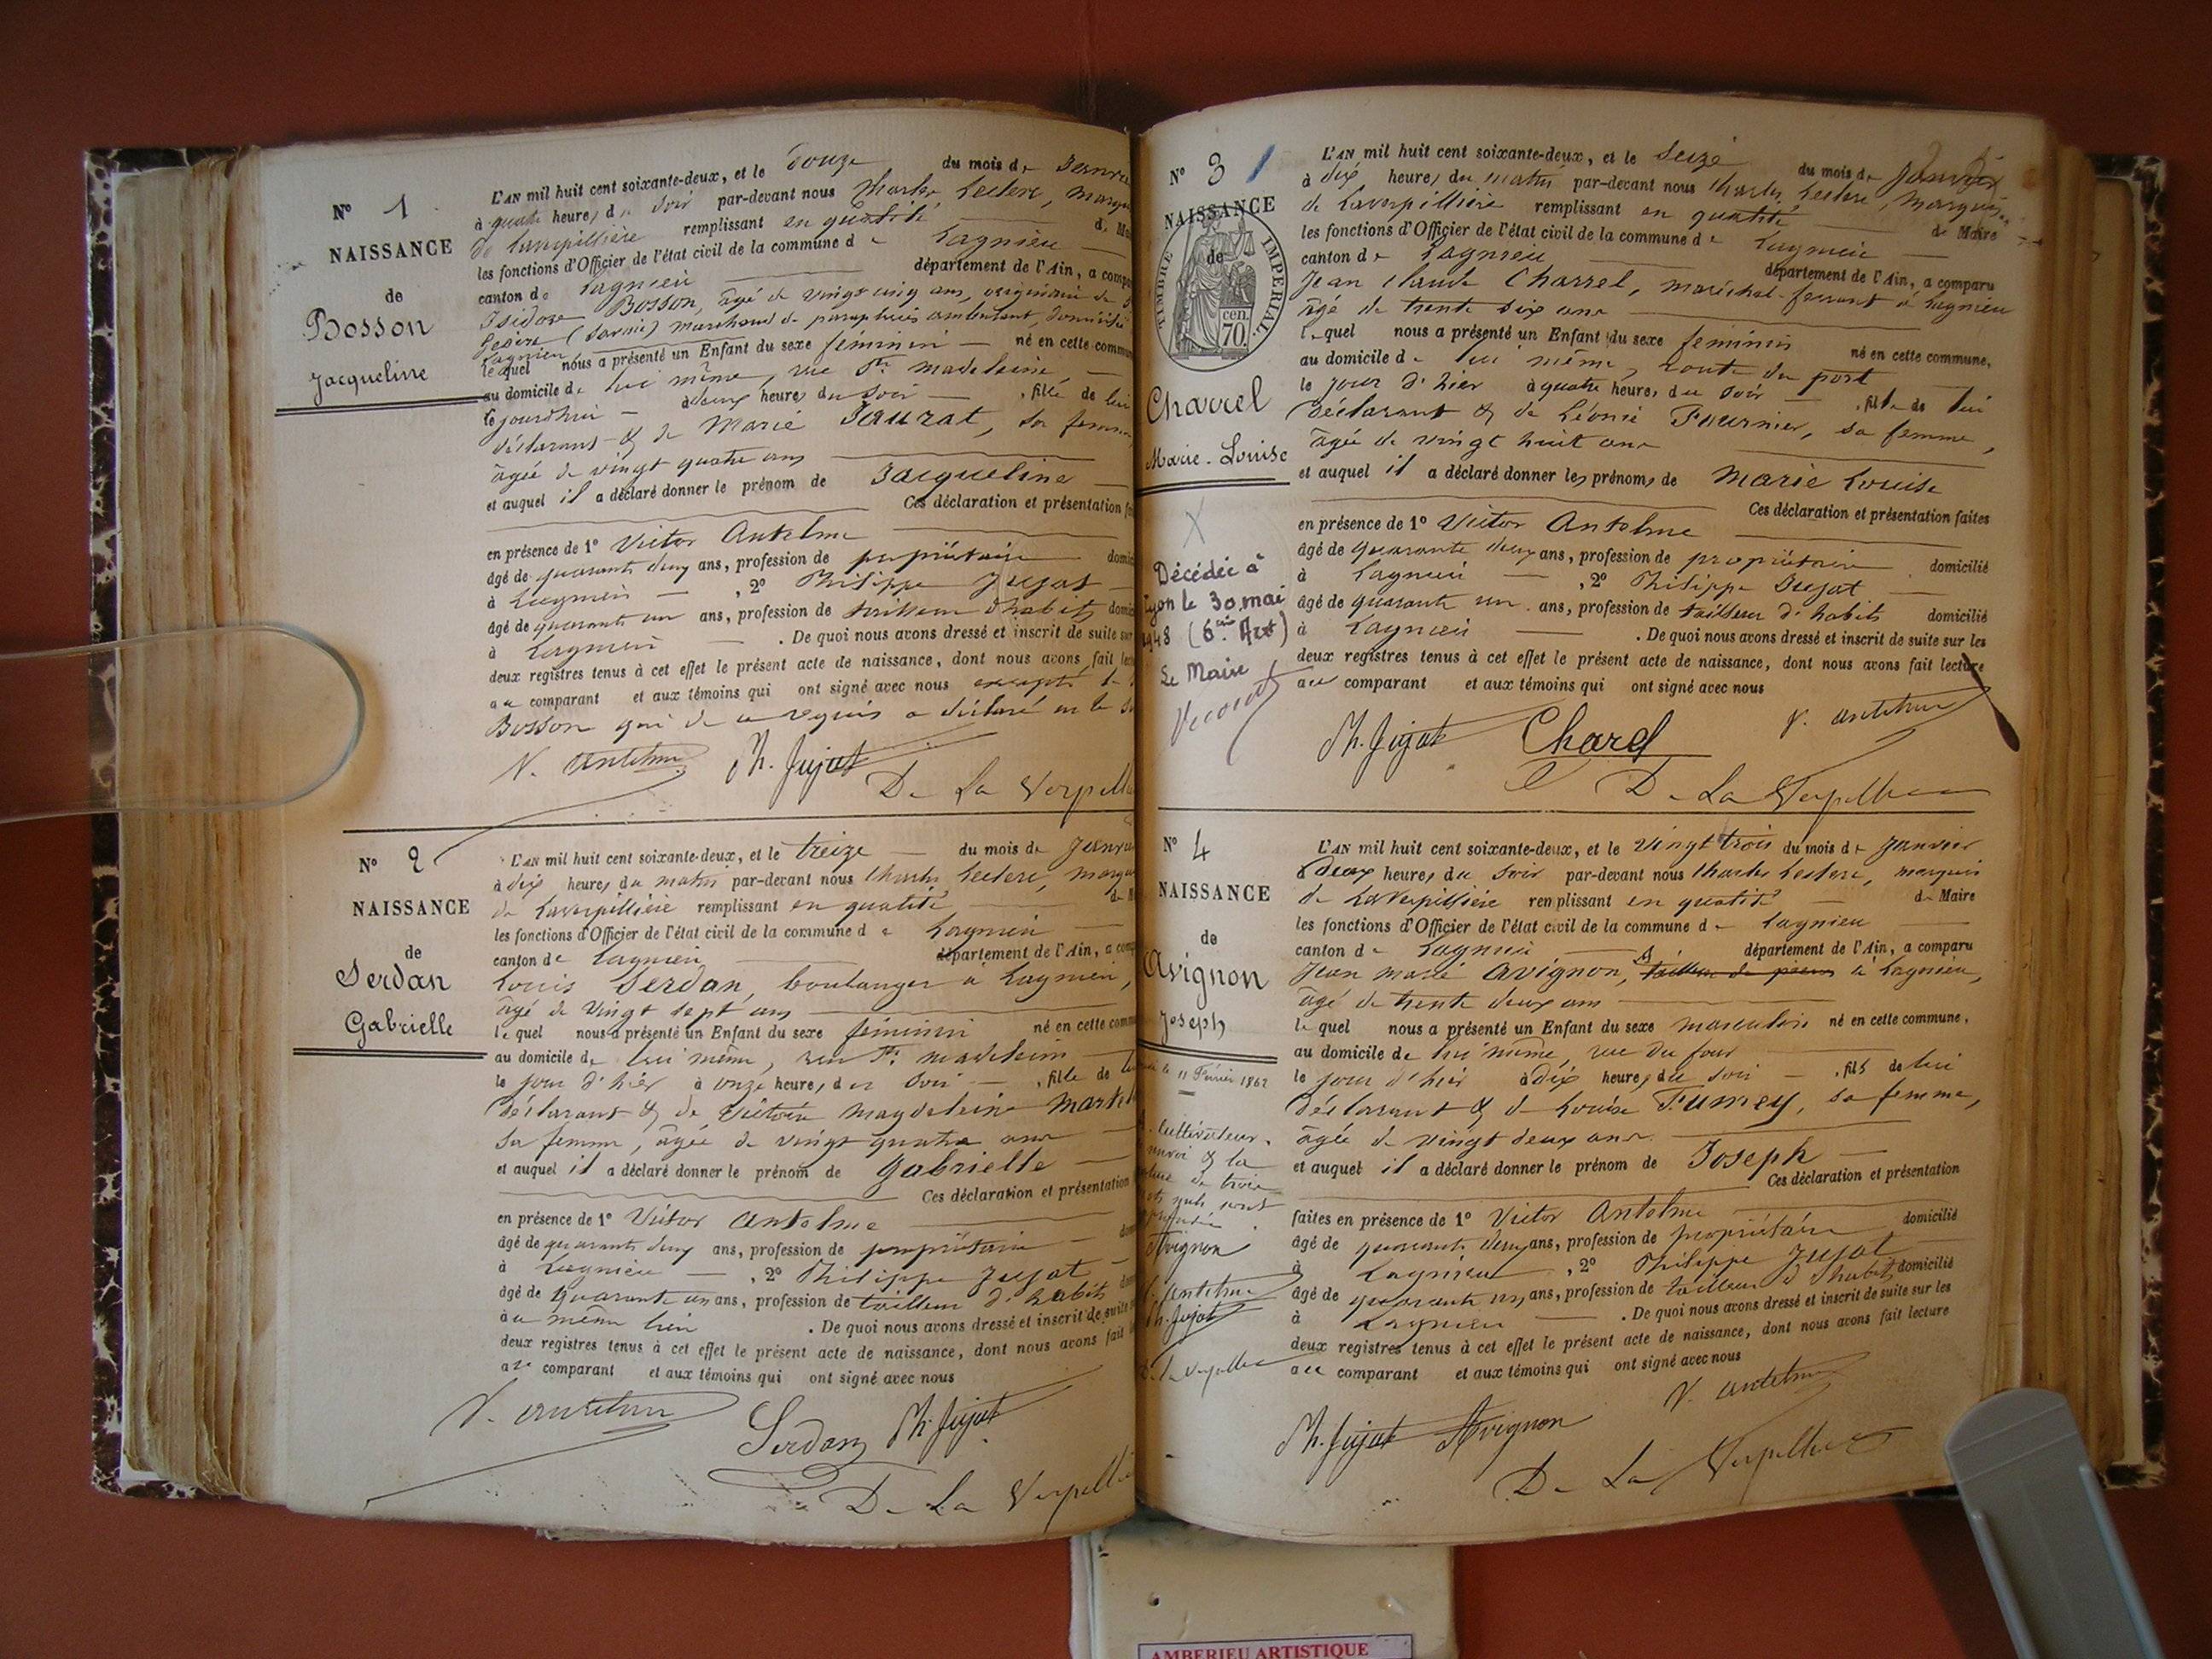 N° 1
NAISSANCE
de
Bosson
Jacqueline
L'AN mil huit cent soixante-deux, et le douze du mois de
à quatre heures du soir par-devant nous Charles Leclerc,
de Laverpillière remplissant en qualité
les fonctions d'Officier de l'état civil de la commune de Lagnieu
canton de Lagnieu département de l'Ain, a
Isidore Bosson, âgé de vingt cinq ans, originaire de
(Savoie) marchand de parapluies ambulant,
Lagnieu
lequel nous a présenté un Enfant du sexe féminin né en cette
au domicile de lui même, rue Ste madeleine
à deux heures du soir , fille de lui
déclarant & de Marie Jaurat, sa femme
âgée de vingt quatre ans
et auquel il a déclaré donner le prénom de Jacqueline
Ces déclaration et présentation
en présence de 1° Victor Antelme
âgé de quarante deux ans, profession de propriétaire
à Lagnieu , 2° Philippe Jujat
âgé de quarante un ans, profession de tailleur d'habits
à Lagnieu . De quoi nous avons dressé et inscrit de suite sur
deux registres tenus à cet effet le présent acte de naissance, dont nous avons fait
au comparant et aux témoins qui ont signé avec nous excepté
Bosson qui de ce requis a déclaré ne le
V. Antelme Ph. Jujat
De La
N° 2
NAISSANCE
de
Serdan
Gabrielle
L'AN mil huit cent soixante-deux, et le treize du mois de
à dix heures du matin par-devant nous Charles Leclerc,
de Laverpillière remplissant en qualité
les fonctions d'Officier de l'état civil de la commune de Lagnieu
canton de Lagnieu département de l'Ain, a
Louis Serdan, boulanger à Lagnieu,
âgé de vingt sept ans
lequel nous a présenté un Enfant du sexe féminin né en cette
au domicile de lui même, rue Ste madeleine
le jour d'hier à onze heures du soir , fille de
déclarant & de Victoire Magdeleine
sa femme, âgée de vingt quatre ans
et auquel il a déclaré donner le prénom de Gabrielle
Ces déclaration et présentation
en présence de 1° Victor Antelme
âgé de quarante deux ans, profession de propriétaire
à Lagnieu , 2° Philippe Jujat
âgé de quarante un ans, profession de tailleur d'habits
au même lieu . De quoi nous avons dressé et inscrit de suite
deux registres tenus à cet effet le présent acte de naissance, dont nous avons fait
au comparant et aux témoins qui ont signé avec nous
V. Antelme
Serdan Ph. Jujat
De La
N° 3
NAISSANCE
de
TIMBRE IMPERIAL
70 cen
Charrel
Marie-Louise
X
Décédée à
Lyon le 30 mai
1948 (6ème Art)
Le Maire
L'AN mil huit cent soixante-deux, et le seize du mois de janvier
à dix heures du matin par-devant nous Charles Leclerc, Marquis
de Laverpillière remplissant en qualité de Maire
les fonctions d'Officier de l'état civil de la commune de Lagnieu
canton de Lagnieu département de l'Ain, a comparu
Jean Claude Charrel, maréchal-ferrant à Lagnieu
âgé de trente six ans
lequel nous a présenté un Enfant du sexe féminin né en cette commune,
au domicile de lui même, route du port
le jour d'hier à quatre heures du soir , fille de lui
déclarant & de Léonie Fournier, sa femme,
âgée de vingt huit ans
et auquel il a déclaré donner les prénoms de Marie Louise
Ces déclaration et présentation faites
en présence de 1° Victor Antelme
âgé de quarante deux ans, profession de propriétaire domicilié
à Lagnieu , 2° Philippe Jujat
âgé de quarante un ans, profession de tailleur d'habits domicilié
à Lagnieu . De quoi nous avons dressé et inscrit de suite sur les
deux registres tenus à cet effet le présent acte de naissance, dont nous avons fait lecture
au comparant et aux témoins qui ont signé avec nous
Ph. Jujat Charel V. Antelme
De La Verpillière
N° 4
NAISSANCE
de
Avignon
Joseph
11 Février 1862
cultivateur,
renvoi & la
de trois
mots nuls sont
Avignon
V. Antelme
Ph. Jujat
L'AN mil huit cent soixante-deux, et le vingt trois du mois de janvier
à deux heures du soir par-devant nous Charles Leclerc, marquis
de Laverpillière remplissant en qualité de Maire
les fonctions d'Officier de l'état civil de la commune de Lagnieu
canton de Lagnieu département de l'Ain, a comparu
Jean marie Avignon, tailleur de pierres à Lagnieu,
âgé de trente deux ans
lequel nous a présenté un Enfant du sexe masculin né en cette commune,
au domicile de lui même, rue du four
le jour d'hier à dix heures du soir , fils de lui
déclarant & de Louise Fumey, sa femme,
âgée de vingt deux ans
et auquel il a déclaré donner le prénom de Joseph
Ces déclaration et présentation
faites en présence de 1° Victor Antelme
âgé de quarante deux ans, profession de propriétaire domicilié
à Lagnieu , 2° Philippe Jujat
âgé de quarante un ans, profession de tailleur d'habits domicilié
à Lagnieu . De quoi nous avons dressé et inscrit de suite sur les
deux registres tenus à cet effet le présent acte de naissance, dont nous avons fait lecture
au comparant et aux témoins qui ont signé avec nous
Ph. Jujat Avignon V. Antelme
De La Verpillière
AMBERIEU ARTISTIQUE